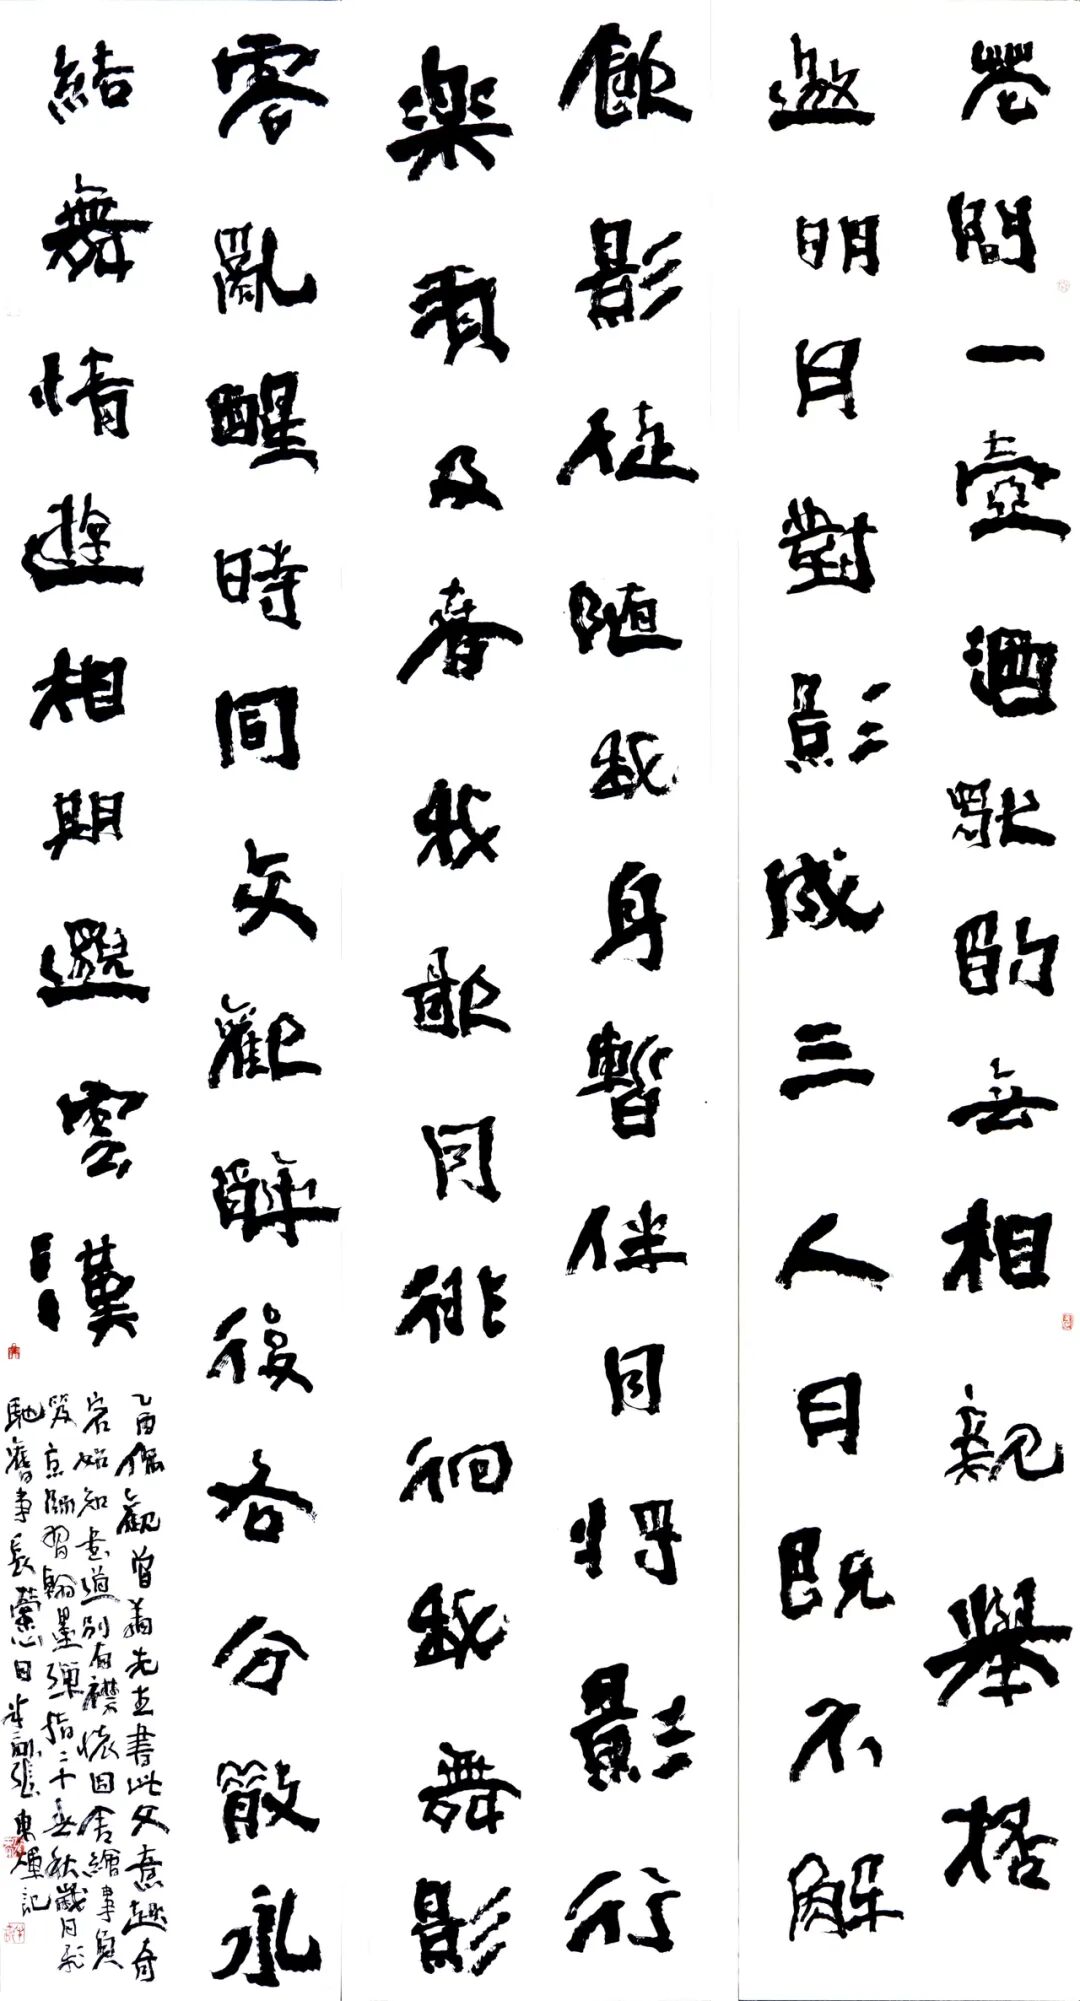 花間一壺酒獨酌無相親舉桮
邀明月對影成三人月既不解
飲影徒隨我身暫伴月將影行
樂須及春我歌月徘徊我舞影
零亂醒時同交歡醉後各分散永
結無情遊相期邈雲漢
乙酉偶觀曾翔先生書此文意趣奇
宕始知書道別有襟懷因舍繪事負
笈京師習翰墨彈指二十春秋歲月飛
馳舊事長縈心目半張東煇記